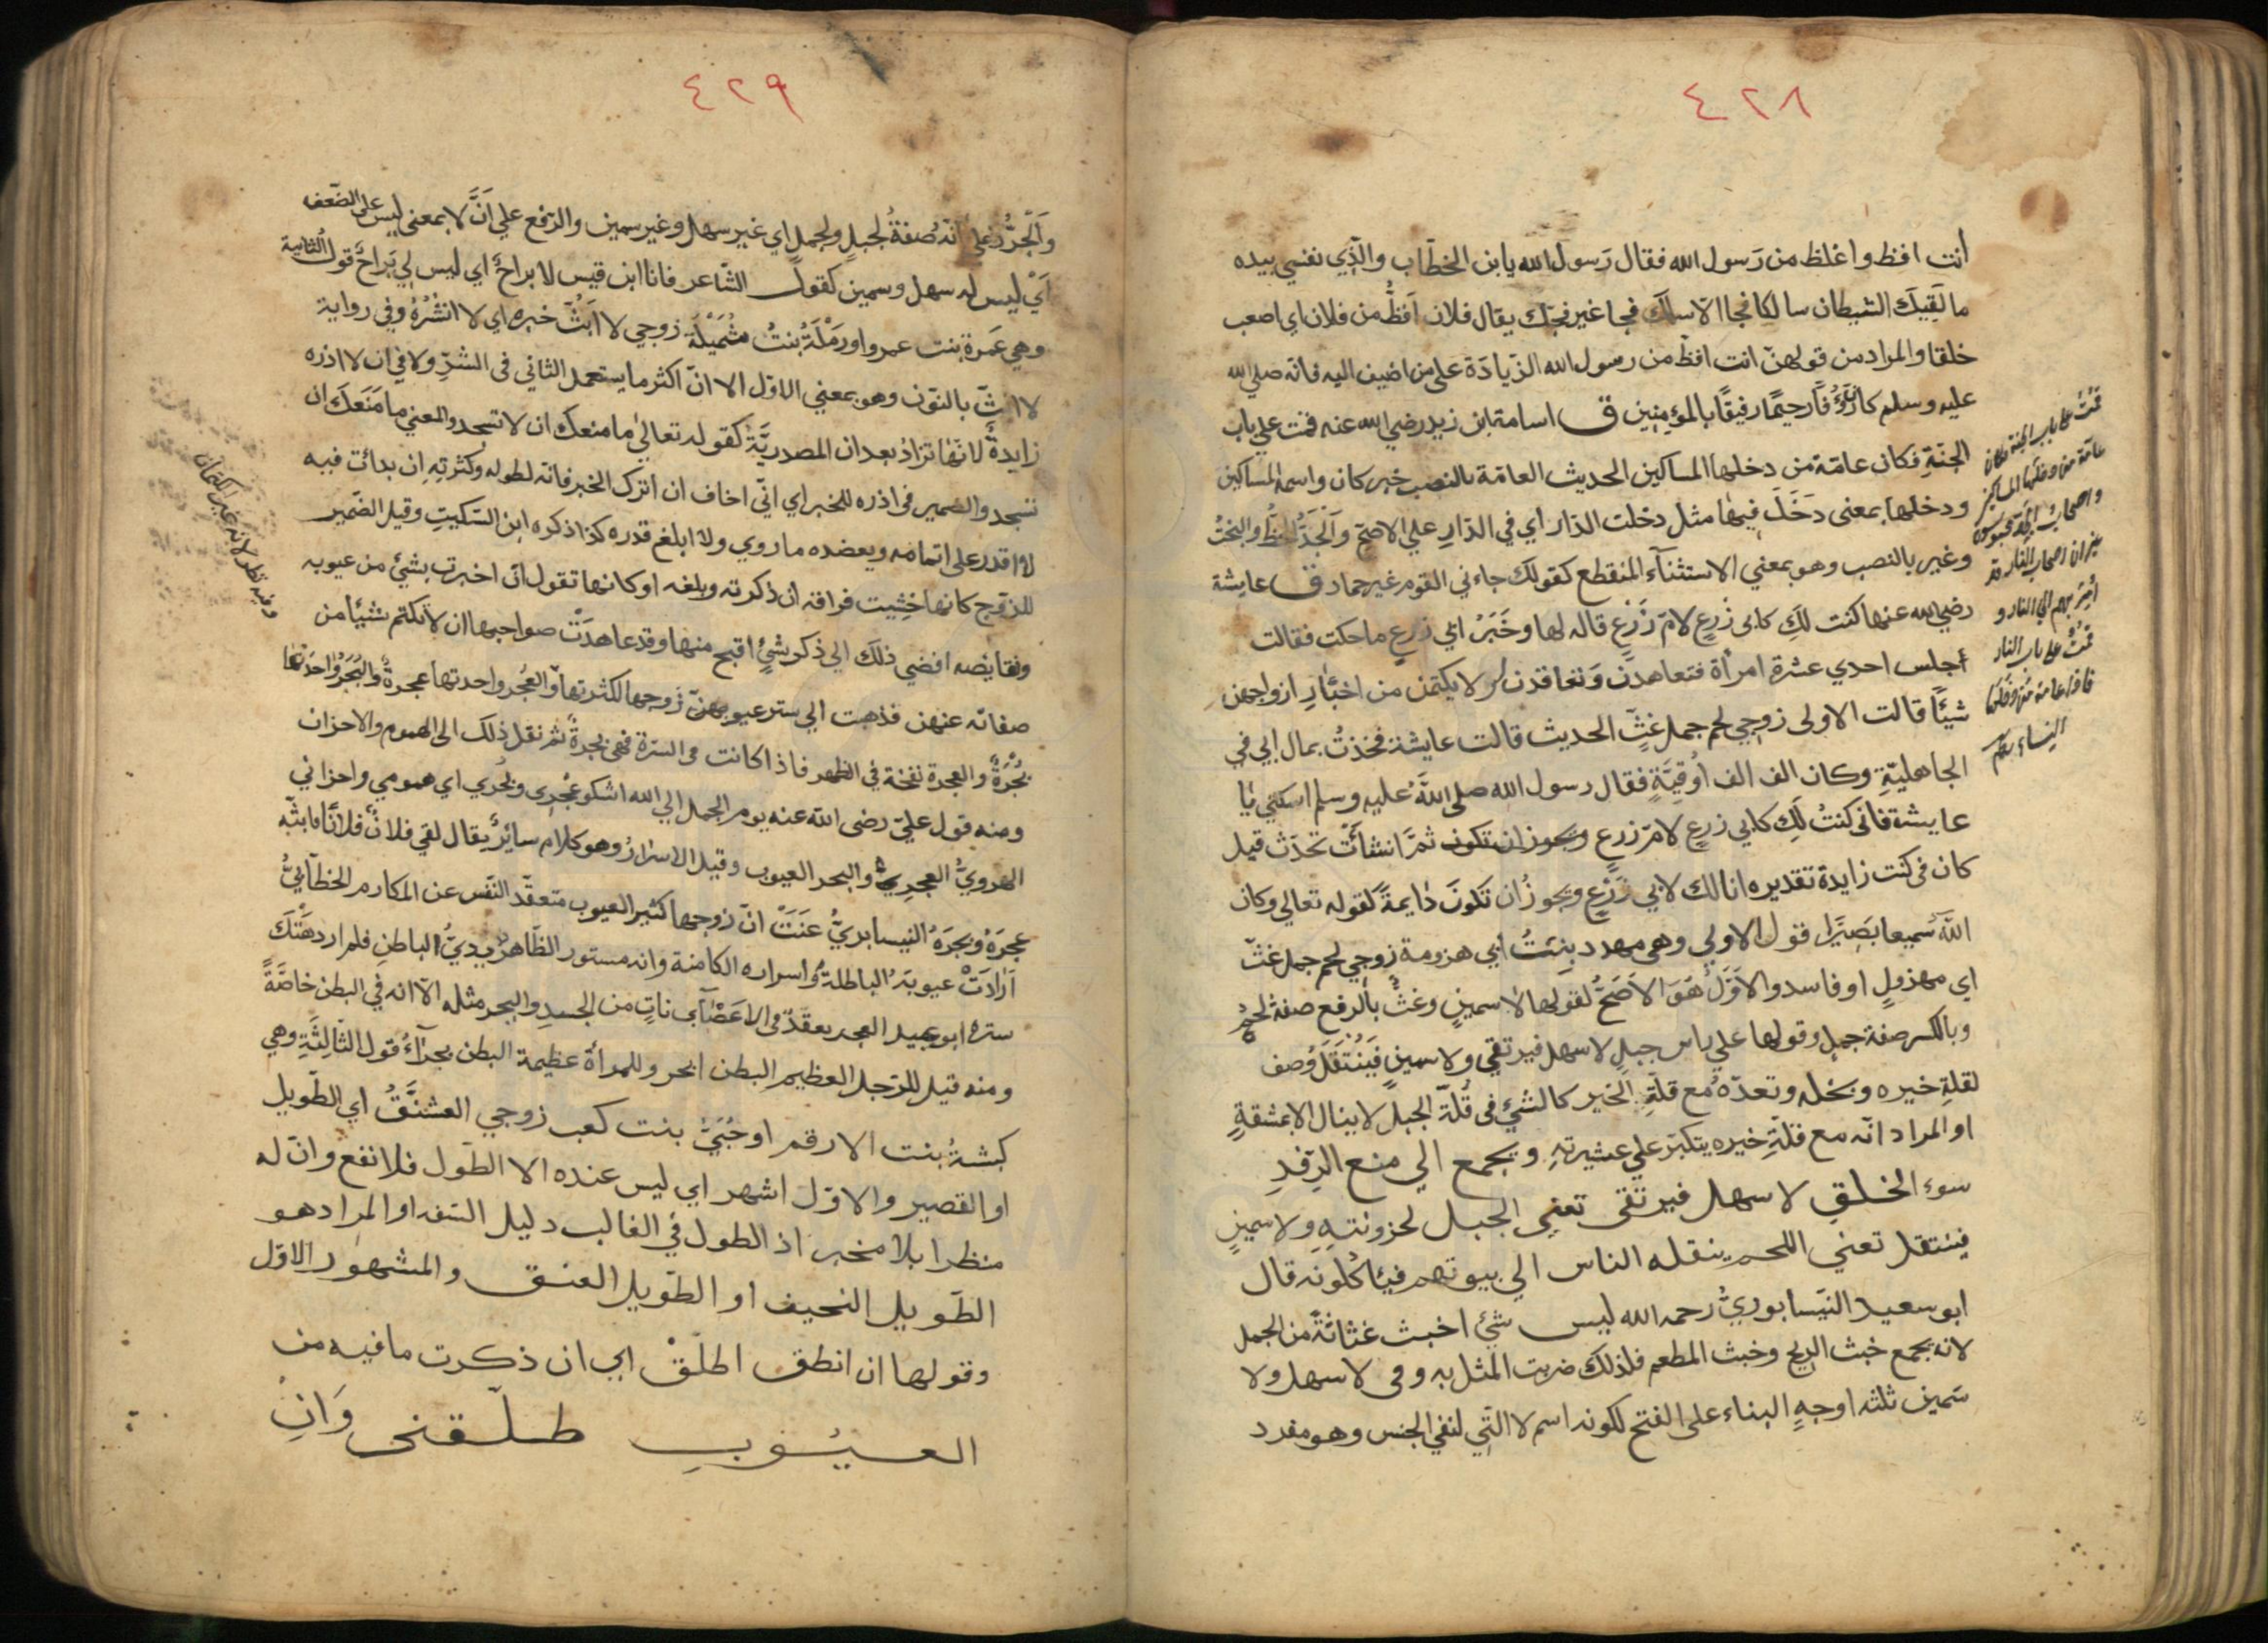 ٤٢٨
أنت افظ واغلظ من رَسول الله فقال رَسول الله يا ابن الخطّاب والّذي نفسي بيده
ما لَقِيَكَ الشيطان سالكا فجا الاّ سلك فجا غير فجّك يقال فلان اَفظُّ من فلان اي اصعب
خلقا والمراد من قولهنّ انت افظّ من رسول الله الزّيادَة على من اضيف اليه فانّه صلى الله
عليه وسلم كان رَؤُفًا رحيمًا رفيقًا بالمؤمنين ق اسامة ابن زيد رضي الله عنه قمت علي باب
الجنّةِ فكان عامّة من دخلها المساكين الحديث العامّة بالنصب خبر كان واسمه المساكين
ودخلها بمعنى دَخَلَ فيها مثل دخلت الدّار اي في الدّارِ علي الاصحّ وَالْجَدُّ الحظُّ والبختُ
وغير بالنصب وهو بمعني الاستثنآء المنقطع كقولك جاءني القوم غير حماد ق عايشة
رضي الله عنها كنت لَكِ كابى زَرعٍ لامّ زَرْعٍ قاله لها وخَبَرُ ابي زرعٍ ما حكت فقالت
أجلس احدي عشرة امرأة فتعاهدن وَتعاقدن ان لا يكتمن من اخبَارِ ازواجهن
شيئًا قالت الاولى زوجي لحم جمل غثٍّ الحديث قالت عايشة فخذتُ بمال ابي في
الجاهليّةِ وكان الف الف اُوقيَّةٍ فقال رسول الله صلى اللهُ عليه وسلم اسكتي يا
عايشة فانى كنتُ لَكِ كابي زرعٍ لامّ زرعٍ ويجوز ان تكون ثمّ انشأتْ تحدّث قيل
كان فى كنت زايدة تقديره انا لك كابي زَرْعٍ ويجوزُ ان تَكونَ دَايمةً كقوله تعالي وكان
الله سَميعا بصيرًا قول الاولي وهى مهدد بنتُ ابي هزومة زوجي لحم جمل غثّ
اي مهزولٍ او فاسد والاَوَّلُ هُوَ الاَصَحُّ لقولها لا سمينٍ وغثُّ بالرفع صفة لحمُ
وبالكسر صفة جملٍ وقولها علي راس جبلٍ لا سهل فيرتقي ولا سمينٍ فَيُنْتَقَلَ وُصف
لقلةِ خيره وبخله وتعدّهُ مع قلّةِ الخير كالشيْ فى قُلّة الجبل لا ينال الا بمشقةٍ
او المراد انّه مع قلّةِ خيره يتكبّر علي عشيرتهِ ويجمع الي منع الرِّفدِ
سوء الخلقِ لا سهل فيرتقى تعني الجبل لحزونتهِ ولا سمينٍ
فينتقل تعني اللحم ينقله الناس الي بيوتهم فيأكلونه قال
ابو سعيد النيّسابوريُّ رحمه الله ليس شئ اخبث غثاثةً من الجمل
لانّه يجمع خبث الريح وخبث المطعم فلذلك ضربت المثل به وفى لا سهل ولا
سَمين ثلثه اوجهٍ البناء على الفتح لكونه اسم لا الّتي لنفي الجنس وهو مفرد
قمْتُ على باب الجنة فكان
عامّة من دخلها المساكين
واصحابُ الجَدِّ محبوسون
غير ان اصحاب النار قد
أُمِرَ بهم الى النار و
قمْتُ على باب النار
فاذا عامة من دخلها
النساء
٤٢٩
وَالْجرُّ على انّه صفةُ لجبلٍ ولجملٍ اي غير سهل وغير سمين والرّفع علي اَنَّ لا بمعني ليس على الضّعف
اَيْ ليس له سهل وسمين كقول الشّاعر فانا ابن قيس لا براحُ اي ليس لي بَراحٌ قول الثانية
وهي عَمرة بنت عمرو او رَمْلَةُ بنتُ مشْمَيْلَة زوجي لا اَبثُّ خبره اي لا انشُرُهُ وفي رواية
لا انثّ بالنّون وهو بمعني الاوّل الا انّ اكثر ما يستعمل الثاني فى الشرِّ ولا في ان لا اذره
زايدةٌ لانّهَا تزادُ بعد ان المصدريَّة كقوله تعالى ما منعك ان لا تسجد والمعني ما مَنَعَكَ ان
تسجد والضمير فى اذره للخبر اي انّي اخاف ان اترك الخبر فانّه لطوله وكثرتِهِ اِن بدأت فيه
لا اقدر على اتمامه ويعضده ما روي ولا ابلغ قدره كذا ذكره ابن السّكيتِ وقيل الضّمير
للزّوج كانّها خشِيت فراقه ان ذكرته وبلغه او كانها تقول ان اخبرت بشيْ من عيوبه
ونقايصه افضي ذلك الي ذكر شئٍ اقبح منها وقد عاهدَتْ صواحبها ان لا تكتم شيئا من
صفاته عنهن فذهبت الي ستر عيوبهنّ زوجها لكثرتها والعُجر واحدتها عجرةٌ والبُجَرُ واحدتها
بُجْرَةٌ والعجرة نفخة في الظهر فاذا كانت فى السّرّة فهى بجرةٌ ثم نقل ذلك الى الهموم والاحزان
ومنه قول عليّ رضى الله عنه يوم الجمل الي الله اشكو عُجَرى وبُجَري اي همومي واحزاني
الهرويُّ العجر والبجر العيوب وقيل الاسرارُ وهو كلام سائرٌ يقال لقى فلانٌ فلانًا فابثّه
عجرَهُ وبجرَهُ النيسابريُّ عنَتْ انّ زوجها كثير العيوب متعقّد النّفس عن المكارم الخطّابيُّ
اَرادَتْ عيوبَهُ الباطلةُ واسراره الكامنة وانه مستور الظّاهر رديُّ الباطن فلم ارد هتك
ستره ابو عبيد العجر تعقّدٌ فى الاعضآبِ ناتٍ من الجسدِ والبجر مثله الاّ انه في البطن خاصّةً
ومنه قيل للرّجل العظيم البطن ابجر وللمرأة عظيمة البطن بجرآءُ قول الثّالثةِ وهي
كبشةُ بنت الارقم او حُبَيُّ بنت كعب زوجي العشنَّقُ اي الطّويل
او القصير والاوّل اشهر اي ليس عنده الا الطّول فلا نفع وانّ له
منظرا بلا مخبر اذ الطول في الغالب دليل السّفه او المراد هو
الطّويل النحيف او الطّويل العنق والمشهور الاوّل
وقولها ان انطق اطلّقْ اي ان ذكرت ما فيه من
العيُوبِ طلّقنى وَانِ